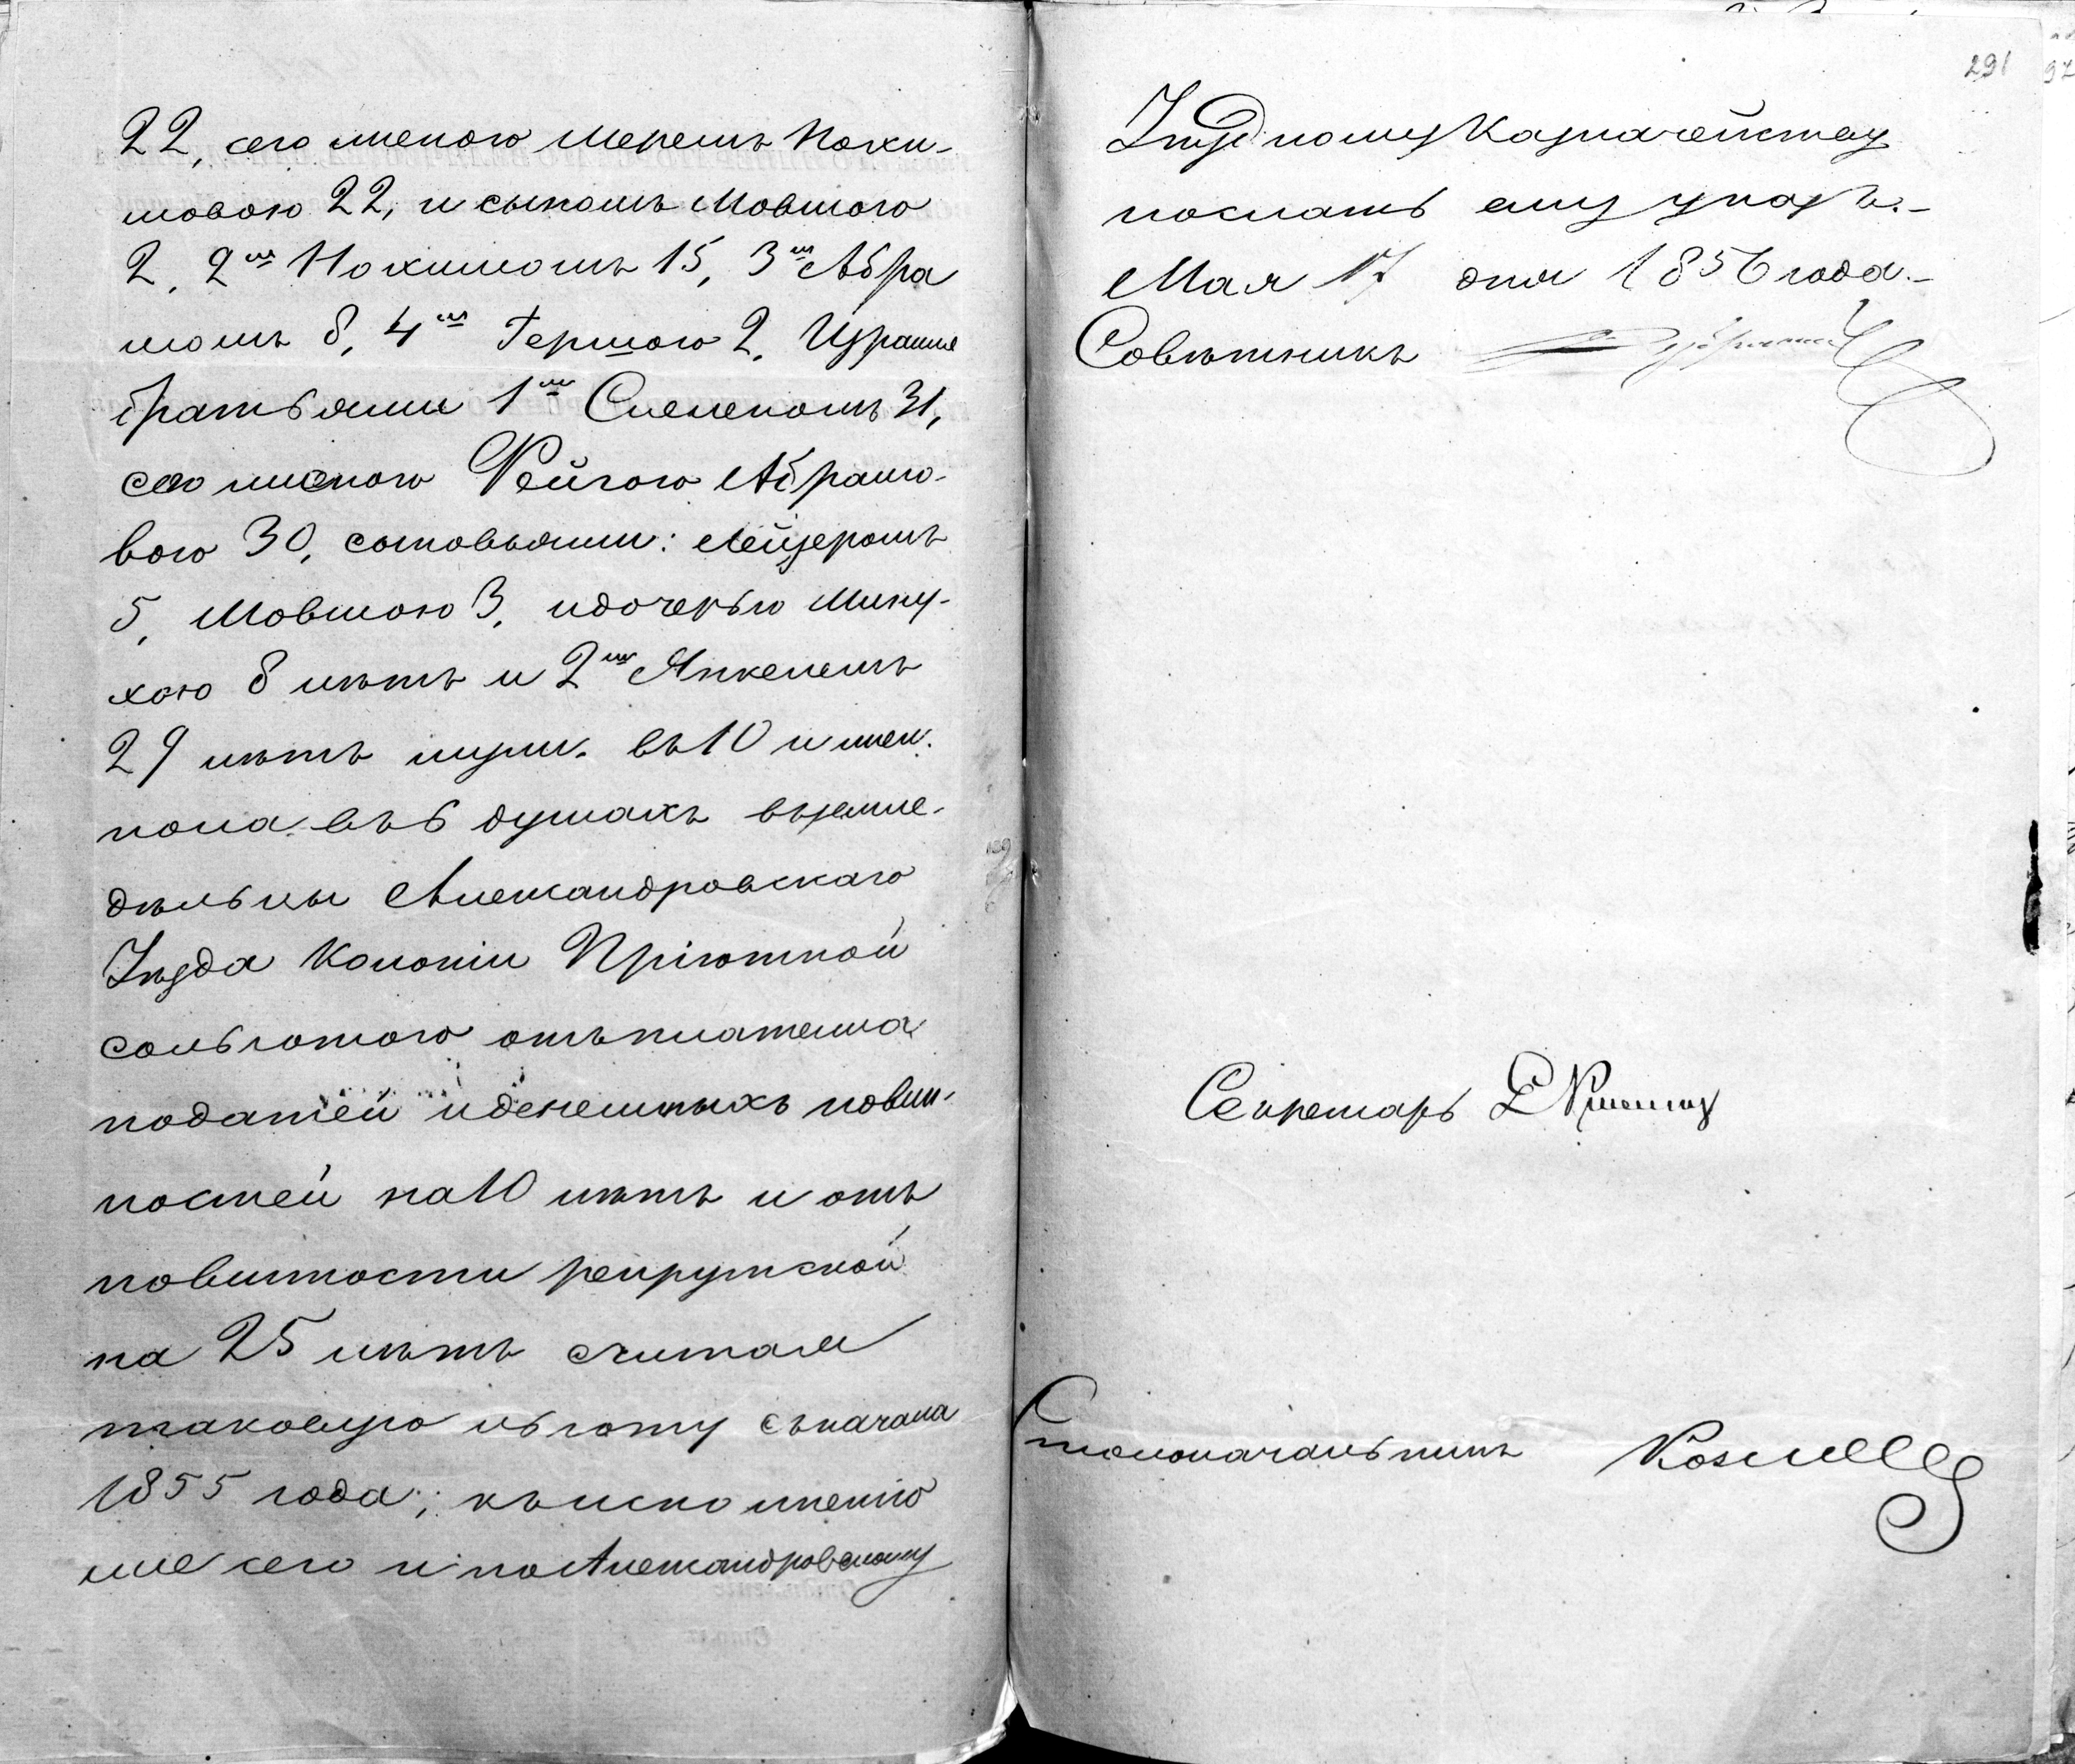 22, его женою Меремъ Нохи-
мовою 22, и сыномъ Мовшою
2, 2мъ Нохимомъ 15, 3мъ Абра
момъ 8, 4мъ Гершою 2, Израиля
братьями 1мъ Слеменомъ 31,
его женою Фейгою Абрамо-
вою 30, сыновьями: Лейзеромъ
5, Мовшою 3, и дочерью Мину-
хою 8 лѣтъ и 2мъ Янкелемъ
29 лѣтъ муж. въ 10 и жен.
пола въ 6 душахъ въ земле-
дѣльцы Александровскаго
Уѣзда Колоніи Пріютной
со льготою отъ платежа
податей и денежныхъ повин-
ностей на 10 лѣтъ и отъ
повинности рекрутской
на 25 лѣтъ считая
таковую льготу съ начала
1855 года; къ исполненію
же сего и по Александровскому
291
Уѣздному Казначейству
послать ему указъ.-
Мая 17 дня 1856 года.-
Совѣтникъ
Секретарь
Столоначальникъ